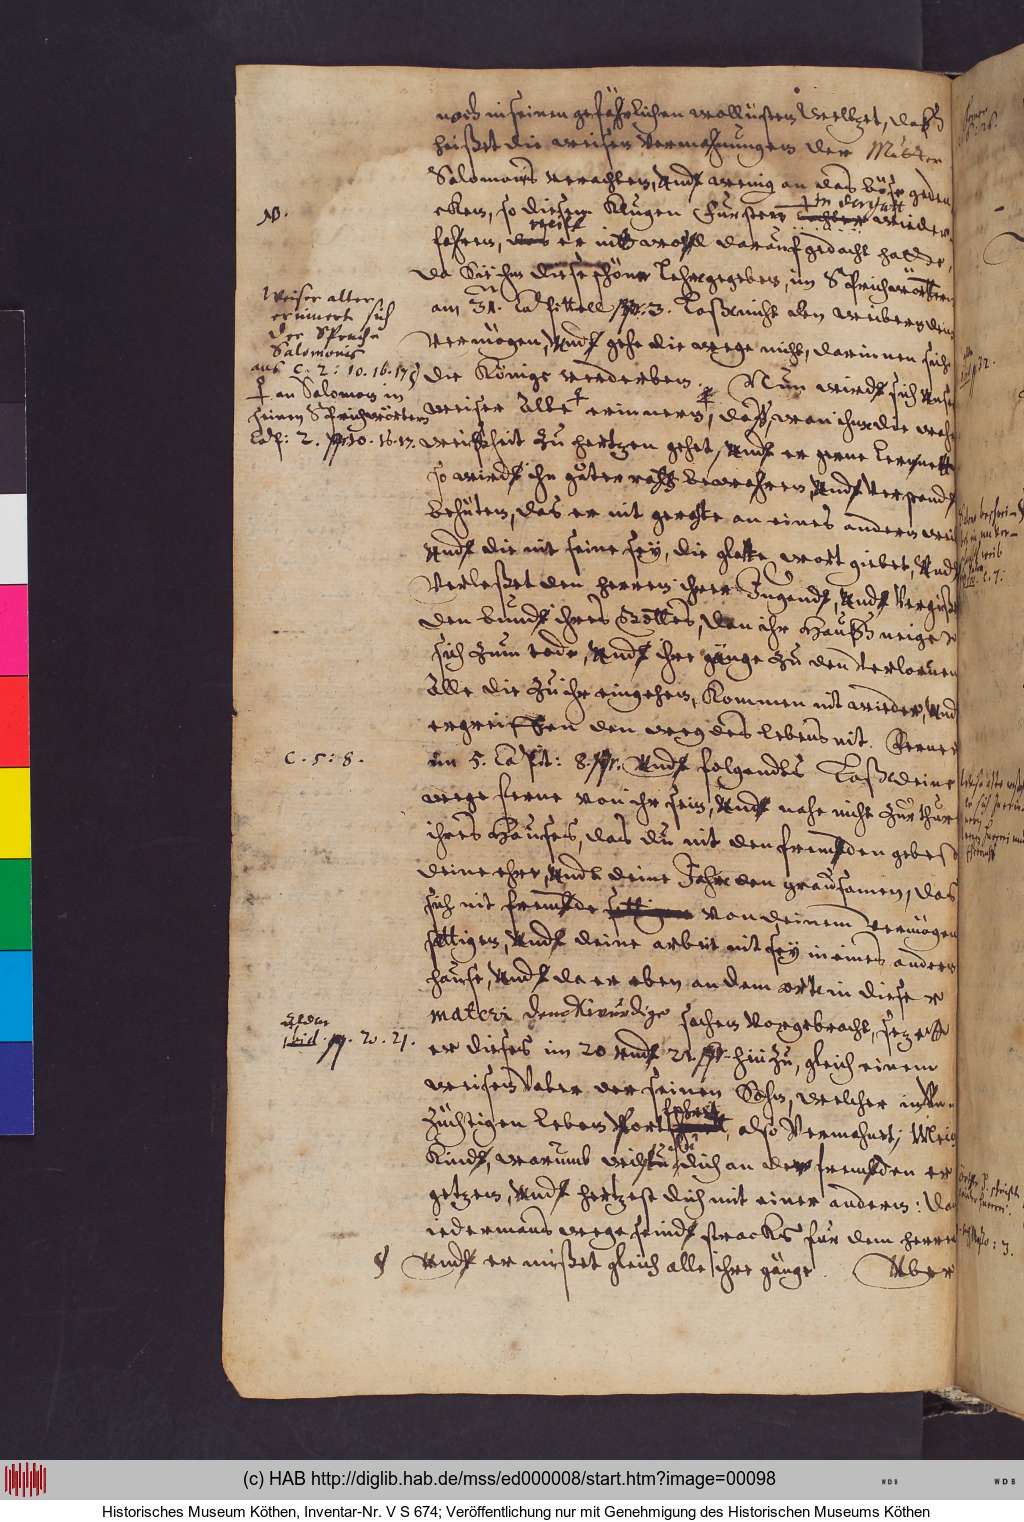 noch in seinen gefährlichen wollüsten weltzet, daß
heißet die weisen vermahnungen der Mutter
Salomonis verachten, Undt wenig an das böse geden
cken, so diesem Klugen Fürsten in der statt wieder
fahren, weill er nit wohl darauf gedacht hatte,
da Sie ihm diese schöne Lehre gegeben, im Sprichwörtern
am 31. Capittell ℣. 3. Laß nicht den weibern dein
Vermögen, Undt gehe die wege nicht, darinnen sich
die Könige verderben. Nun wirdt sich Unser
weiser Alte erinnern, daß, wan ihme die wahre
weißheit zu hertzen gehet, Undt er gerne lernette
so wirdt ihn guter raht bewahren, Undt Verstandt
behüten, das er nit gerahte an eines andern weib
Undt die nit seine sey, die glatte wort giebet, Undt
Verleßet den herren ihrer Jugendt, Undt Vergißet
den bundt ihres Gottes, den ihr Hauß neiget
sich zum tode, Undt ihre gänge zu den Verlornen
Alle die zu ihr eingehen, kommen nit wieder, Und
ergreiffen den weg des lebens nit. Ferner
im 5. Capit: 8. ℣. Undt folgendts Laß deine
wege ferne von ihr sein, Undt nahe nicht zur thür
ihres Hauses, das du nit den frembden gebest
deine ehre, Undt deine Jahre den grausamen, das
sich nit frembde von deinem Vermögen
settigen, Undt deine arbeit nit sey in eines andern
hause, Undt da er eben an dem orte in dieser
materi denckwürdige sachen Vorgebracht, sezette
er dieses im 20 Undt 21. ℣. hinzu, gleich einem
weisen Vater der seinen Sohn, welcher in Un
züchtigen leben fort fehret, also Vermahnet, Mein
Kindt, warumb wiltu dich an der frembden er
getzen, Undt hertzest dich mit einer andern: Dan
iedermans wege seindt stracks für dem herren
Undt er mißet gleich alle ihre gänge. Aber
NB.
Weiser alter
erinnert sich
der Sprüche
Salomonis
aus C. 2: 10. 16. 17. 18
an Salomon in
seinen Sprichwörtern
Cap: 2. ℣ 10. 16. 17.
C. 5: 8.
Eben
ibid. ℣. 20. 21.
(c) HAB http://diglib.hab.de/mss/ed000008/start.htm?image=00098
Historisches Museum Köthen, Inventar-Nr. V S 674; Veröffentlichung nur mit Genehmigung des Historischen Museums Köthen